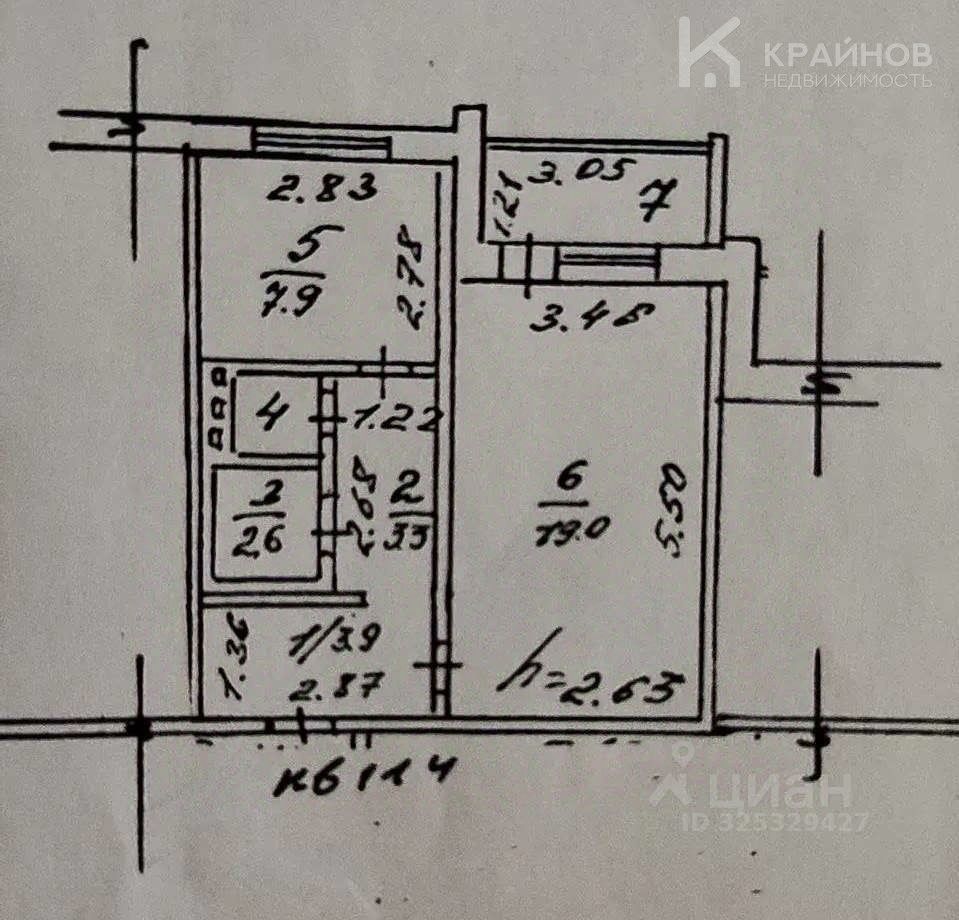 КРАЙНОВ
НЕДВИЖИМОСТЬ
2.83
3.05
7
1.21
5
7.9
2.78
3.48
4
1.22
3
2.6
2.68
2
3.3
6
19.0
5.50
1.36
1/3.9
2.87
h=2.63
кв 114
циан
ID 325329427